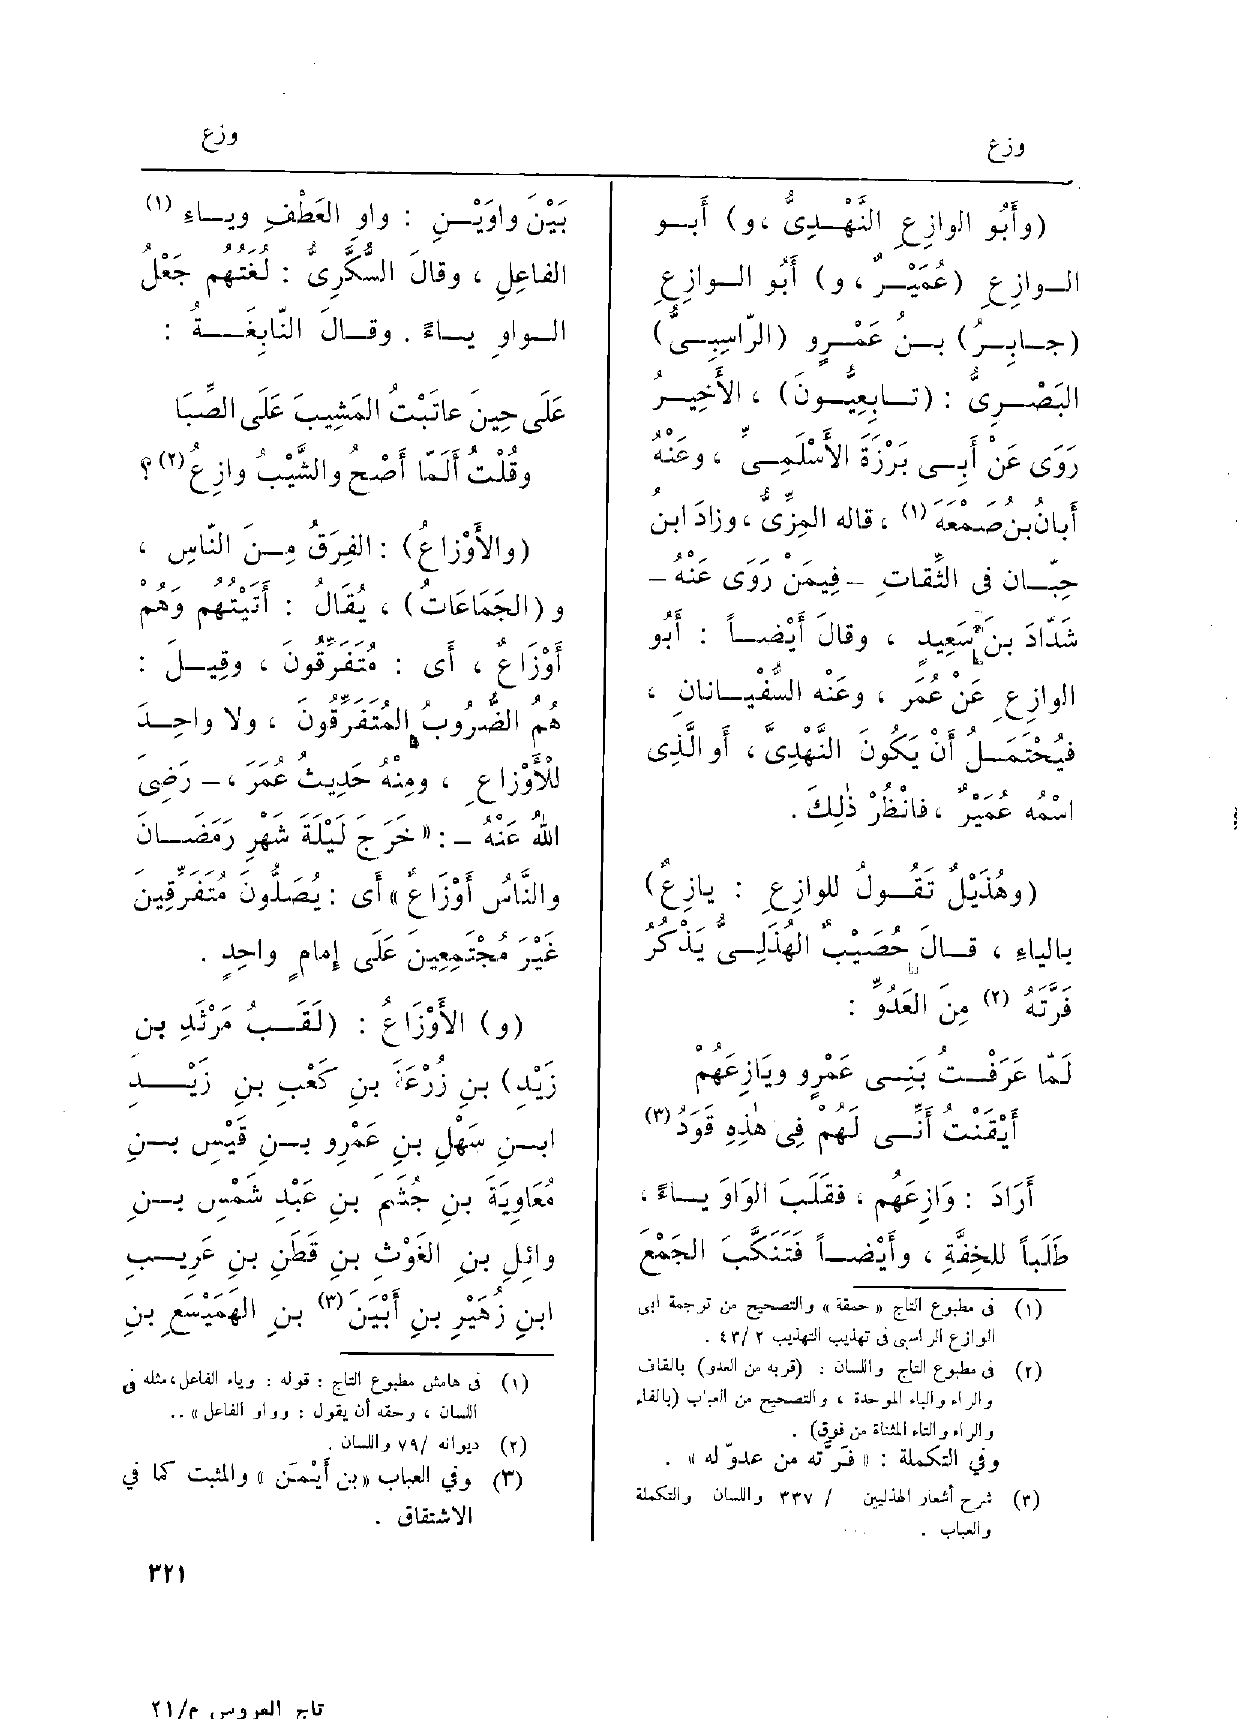 وزع
وزع
(وأَبُو الوازِعِ النَّهْدِىُّ، و) أَبو
الوازِعِ (عُمَيْرٌ، و) أَبُو الوازِعِ
(جابِرُ) بن عَمْرٍو (الرّاسِبِىُّ)
البَصْرِىُّ : (تابِعِيُّونَ) ، الأَخِيرُ
رَوَى عَنْ أَبِى بَرْزَةَ الأَسْلَمِىِّ ، وعَنْهُ
أَبانُ بنُ صَمْعَةَ (١) ، قاله المِزِّىُّ ، وزادَ ابن
حِبّان فى الثِّقاتِ – فِيمَنْ رَوَى عَنْهُ –
شَدّادَ بنَ سَعِيدٍ ، وقالَ أَيْضاً : أَبُو
الوازِعِ عَنْ عُمَر ، وعَنْه السُّفْيانان ،
فيُحْتَمَلُ أَنْ يَكُونَ النَّهْدِىَّ ، أَو الَّذِى
اسْمُه عُمَيْرٌ ، فانْظُرْ ذٰلِكَ .
(وهُذَيْلٌ تَقُولُ للوازِعِ : يازِعٌ)
بالياءِ ، قالَ حُصَيْبٌ الهُذَلِىُّ يَذْكُرُ
فَرَّتَهُ (٢) مِنَ العَدُوِّ :
لَمّا عَرَفْتُ بَنِى عَمْرٍو ويَازِعَهُمْ
أَيْقَنْتُ أَنِّى لَهُمْ فِى هٰذِهِ قَوَدُ (٣)
أَرَادَ : وَازِعَهُم ، فقَلَبَ الوَاوَ ياءً ،
طَلَباً للخِفَّةِ ، وأَيْضاً فَتَنَكَّبَ الجَمْعَ
(١) فى مطبوع التاج « حمقة » والتصحيح من ترجمة ابى
الوازع الراسبى فى تهذيب التهذيب ٢ /٤٣ .
(٢) فى مطبوع التاج واللسان : (قربه من العدو) بالقاف
والراء والباء الموحدة ، والتصحيح من العباب (بالفاء
والراء والتاء المثناة من فوق) .
وفي التكملة : « فَرَّته من عدوّ له » .
(٣) شرح أشعار الهذليين / ٣٣٧ واللسان والتكملة
والعباب .
بَيْنَ واوَيْنِ : واوِ العَطْفِ وياءِ (١)
الفاعِلِ ، وقالَ السُّكَّرِىُّ : لُغَتُهم جَعْلُ
الواوِ ياءً . وقالَ النّابِغَةُ :
عَلَى حِينَ عاتَبْتُ المَشِيبَ عَلَى الصِّبَا
وقُلْتُ أَلَمّا أَصْحُ والشَّيْبُ وازِعُ (٢)؟
(والأَوْزاعُ) : الفِرَقُ مِنَ النّاسِ ،
و (الجَمَاعَاتُ) ، يُقَالُ : أَتَيْتُهُم وَهُمْ
أَوْزَاعٌ ، أَى : مُتَفَرِّقُونَ ، وقِيلَ :
هُم الضُّرُوبُ المُتَفَرِّقُونَ ، ولا واحِدَ
لِلْأَوْزاعِ ، ومِنْهُ حَدِيثُ عُمَرَ ، – رَضِىَ
اللهُ عَنْهُ – : « خَرَجَ لَيْلَةَ شَهْرِ رَمَضانَ
والنَّاسُ أَوْزَاعٌ » أَى : يُصَلُّونَ مُتَفَرِّقِينَ
غَيْرَ مُجْتَمِعِينَ عَلَى إِمامٍ واحِدٍ .
(و) الأَوْزَاعُ : (لَقَبُ مَرْثَدِ بن
زَيْدِ) بنِ زُرْعَةَ بنِ كَعْبِ بنِ زَيْدِ
ابنِ سَهْلِ بنِ عَمْرِو بنِ قَيْسِ بنِ
مُعَاوِيَةَ بنِ جُشَمَ بنِ عَبْدِ شَمْسِ بنِ
وائِلِ بنِ الغَوْثِ بنِ قَطَنِ بنِ عَرِيبِ
ابنِ زُهَيْرِ بنِ أَبْيَنَ (٣) بنِ الهَمَيْسَعِ بنِ
(١) فى هامش مطبوع التاج : قوله : وياء الفاعل، مثله فى
اللسان ، وحقه أن يقول : وواو الفاعل » ..
(٢) ديوانه /٧٩ واللسان .
(٣) وفي العباب «بن أَيْمَن » والمثبت كما في
الاشتقاق .
٣٢١
تاج العروس م/٢١